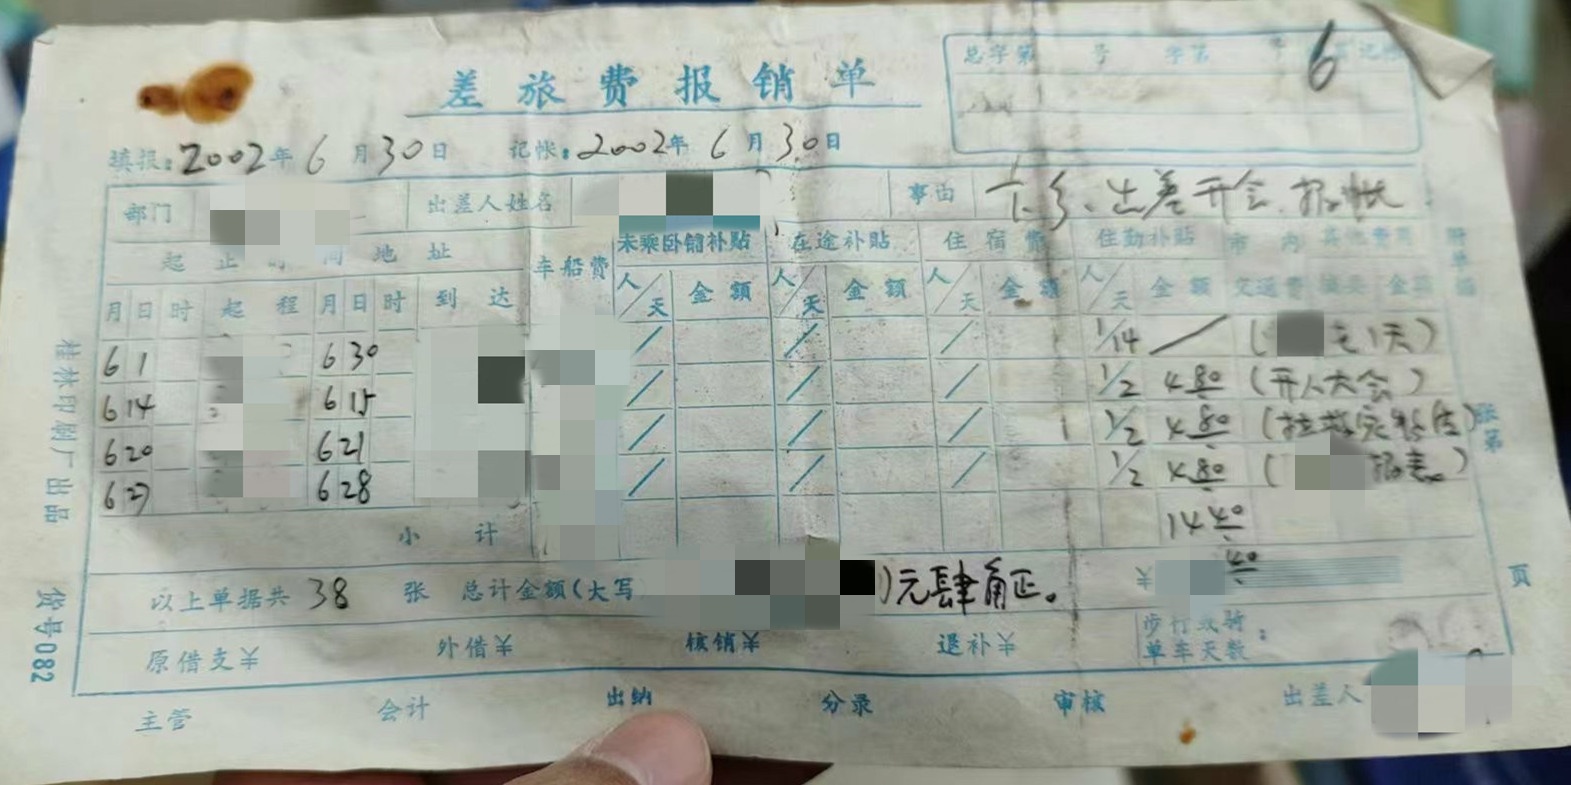 差旅费报销单
总字第 号 字第 号 6
填报:2002年6月30日 记帐:2002年6月30日
部门 出差人姓名 事由 下乡、出差开会、报帐
起止时间地址 车船费 未乘卧铺补贴 在途补贴 住宿费 住勤补贴 市内
月 日 时 起程 月 日 时 到达 人/天 金额 人/天 金额 人/天 金额 人/天 金额 交通费 金额
6 1 6 30 / / / 1/14 / ( 1天)
6 14 6 15 / / / 1/2 4 80 (开人大会)
6 20 6 21 / / / 1/2 4 80
6 27 6 28 / / / 1/2 4 80 ( 报表)
小计 14 40
以上单据共 38 张 总计金额(大写 )元肆角正。 ¥ 40
原借支¥ 外借¥ 核销¥ 退补¥ 步行或骑单车天数:
主管 会计 出纳 分录 审核 出差人
桂林印刷厂出品 货号082
页